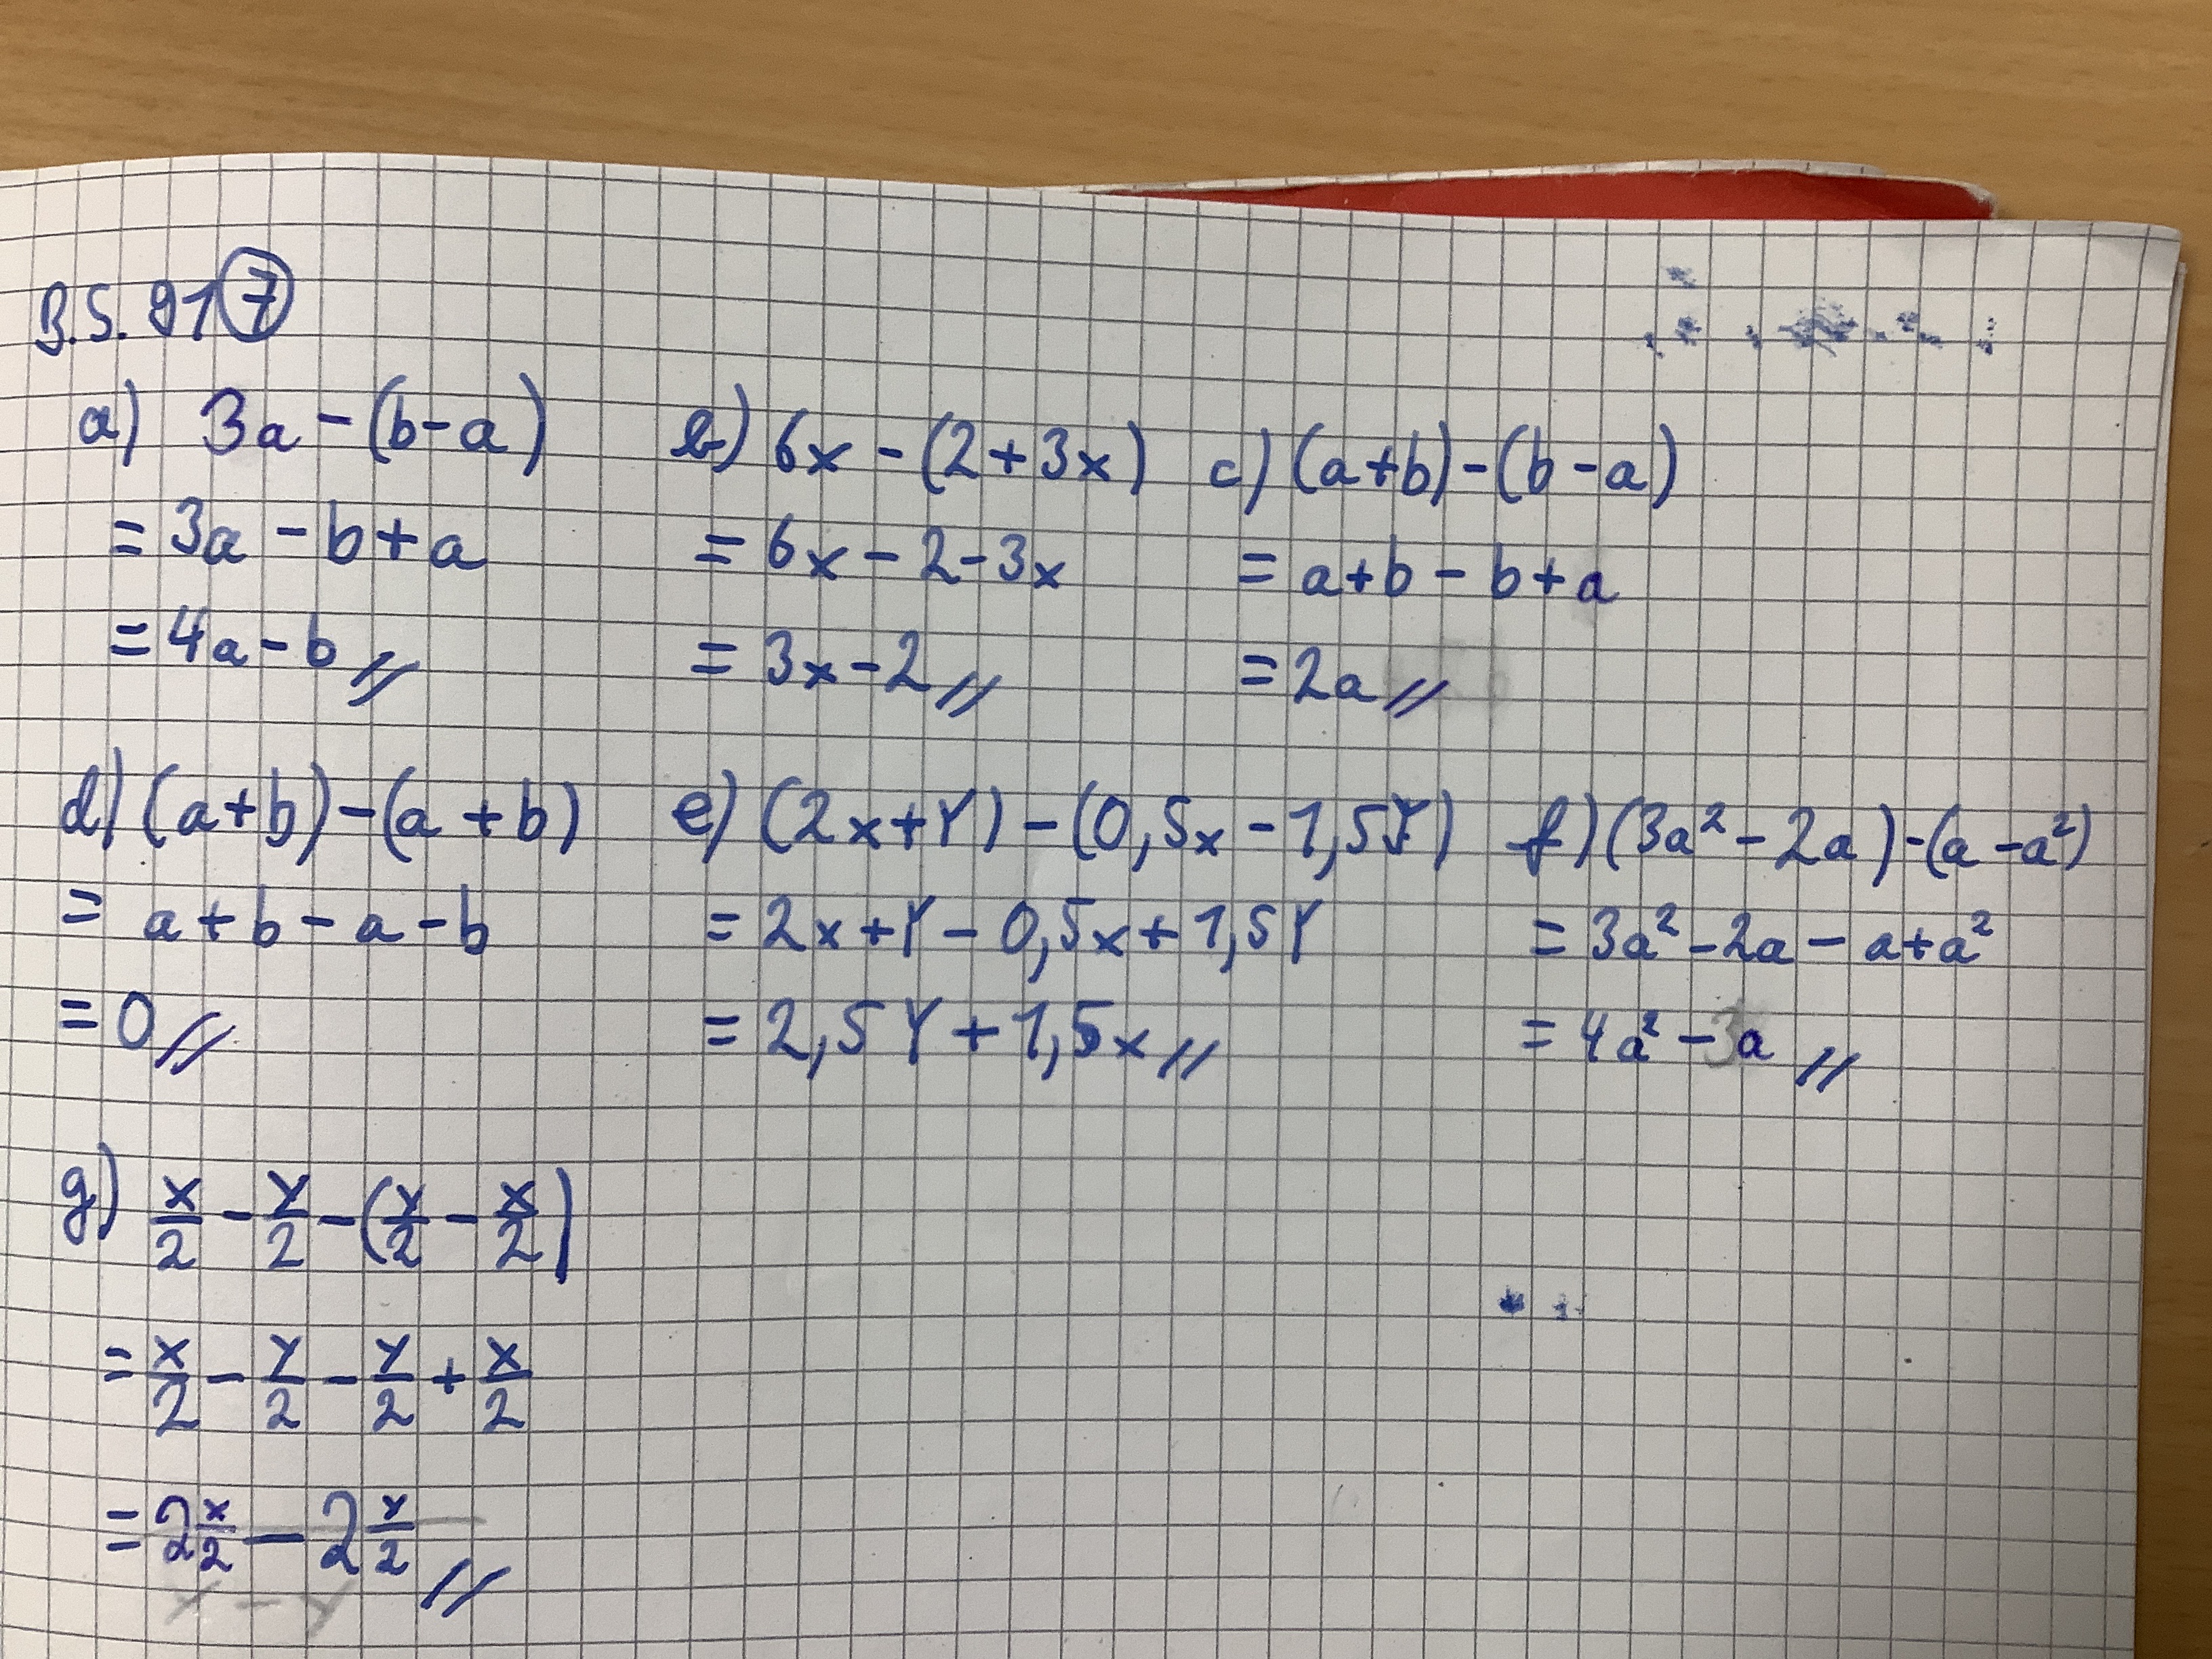 B.S. 91 7
a) 3a - (b-a)
= 3a - b + a
= 4a - b //
b) 6x - (2 + 3x)
= 6x - 2 - 3x
= 3x - 2 //
c) (a+b) - (b-a)
= a+b - b+a
= 2a //
d) (a+b) - (a+b)
= a+b - a - b
= 0 //
e) (2x+Y) - (0,5x - 1,5Y)
= 2x+Y - 0,5x + 1,5Y
= 2,5Y + 1,5x //
f) (3a² - 2a) - (a - a²)
= 3a² - 2a - a + a²
= 4a² - 3a //
g) x/2 - y/2 - (y/2 - x/2)
= x/2 - y/2 - y/2 + x/2
= 2 x/2 - 2 y/2 //
x - y